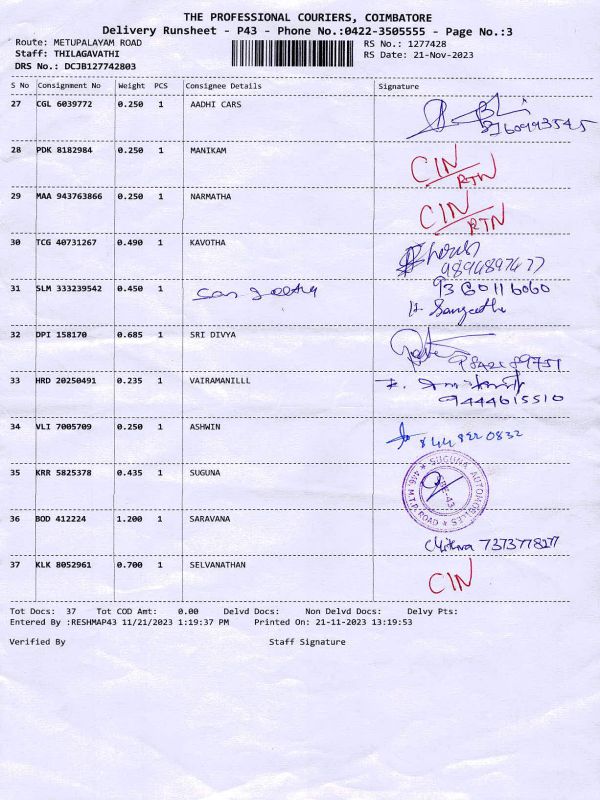 THE PROFESSIONAL COURIERS, COIMBATORE
Delivery Runsheet - P43 - Phone No.:0422-3505555 - Page No.:3
Route: METUPALAYAM ROAD RS No.: 1277428
Staff: THILAGAVATHI RS Date: 21-Nov-2023
DRS No.: DCJB127742803
S No Consignment No Weight PCS Consignee Details Signature
27 CGL 6039772 0.250 1 AADHI CARS
28 PDK 8182984 0.250 1 MANIKAM CIN
RTN
29 MAA 943763866 0.250 1 NARMATHA CIN
RTN
30 TCG 40731267 0.490 1 KAVOTHA
9894897477
31 SLM 333239542 0.450 1 Sangeetha 9360116060
Sangeetha
32 DPI 158170 0.685 1 SRI DIVYA
9842189751
33 HRD 20250491 0.235 1 VAIRAMANILLL
9444615510
34 VLI 7005709 0.250 1 ASHWIN 8448220832
35 KRR 5825378 0.435 1 SUGUNA SUGUNA AUTOMOBILES
416, M.T.P. ROAD
36 BOD 412224 1.200 1 SARAVANA
37 KLK 8052961 0.700 1 SELVANATHAN CIN
Tot Docs: 37 Tot COD Amt: 0.00 Delvd Docs: Non Delvd Docs: Delvy Pts:
Entered By :RESHMAP43 11/21/2023 1:19:37 PM Printed On: 21-11-2023 13:19:53
Verified By Staff Signature